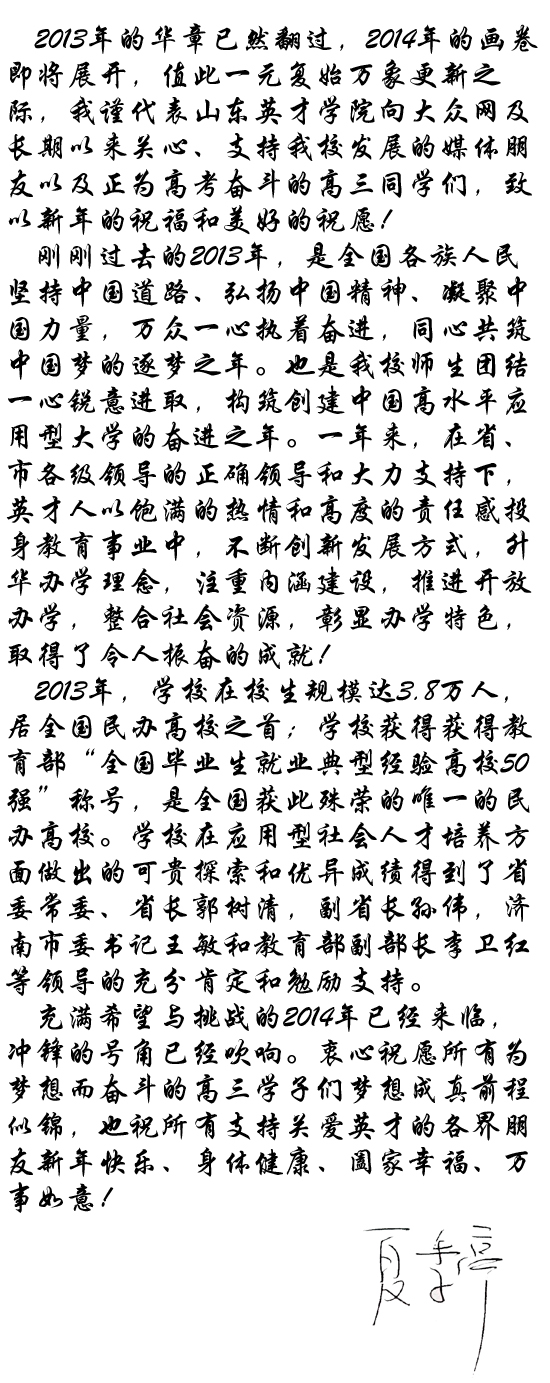 2013年的华章已然翻过，2014年的画卷
即将展开，值此一元复始万象更新之
际，我谨代表山东英才学院向大众网及
长期以来关心、支持我校发展的媒体朋
友以及正为高考奋斗的高三同学们，致
以新年的祝福和美好的祝愿！
刚刚过去的2013年，是全国各族人民
坚持中国道路、弘扬中国精神、凝聚中
国力量，万众一心执着奋进，同心共筑
中国梦的逐梦之年。也是我校师生团结
一心锐意进取，构筑创建中国高水平应
用型大学的奋进之年。一年来，在省、
市各级领导的正确领导和大力支持下，
英才人以饱满的热情和高度的责任感投
身教育事业中，不断创新发展方式，升
华办学理念，注重内涵建设，推进开放
办学，整合社会资源，彰显办学特色，
取得了令人振奋的成就！
2013年，学校在校生规模达3.8万人，
居全国民办高校之首；学校获得获得教
育部“全国毕业生就业典型经验高校50
强”称号，是全国获此殊荣的唯一的民
办高校。学校在应用型社会人才培养方
面做出的可贵探索和优异成绩得到了省
委常委、省长郭树清，副省长孙伟，济
南市委书记王敏和教育部副部长李卫红
等领导的充分肯定和勉励支持。
充满希望与挑战的2014年已经来临，
冲锋的号角已经吹响。衷心祝愿所有为
梦想而奋斗的高三学子们梦想成真前程
似锦，也祝所有支持关爱英才的各界朋
友新年快乐、身体健康、阖家幸福、万
事如意！
夏季亭